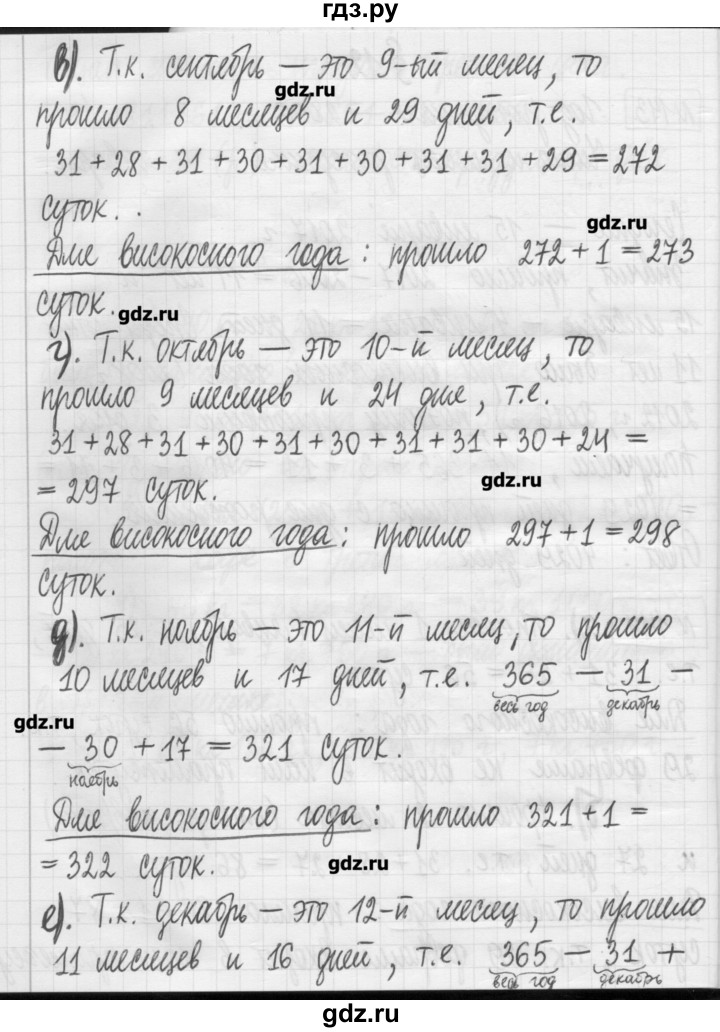 гдз.ру
в). Т.к. сентябрь — это 9-ый месяц, то
gdz.ru
прошло 8 месяцев и 29 дней, т.е.
31 + 28 + 31 + 30 + 31 + 30 + 31 + 31 + 29 = 272
суток. .
gdz.ru
Для високосного года : прошло 272 + 1 = 273
суток.
gdz.ru
г). Т.к. октябрь — это 10-й месяц, то
прошло 9 месяцев и 24 дня, т.е.
31 + 28 + 31 + 30 + 31 + 30 + 31 + 31 + 30 + 24 =
= 297 суток.
gdz.ru
Для високосного года : прошло 297 + 1 = 298
суток.
д). Т.к. ноябрь — это 11-й месяц, то прошло
10 месяцев и 17 дней, т.е. 365 — 31 —
весь год декабрь
gdz.ru
— 30 + 17 = 321 суток.
ноябрь
Для високосного года : прошло 321 + 1 =
= 322 суток.
gdz.ru
е). Т.к. декабрь — это 12-й месяц, то прошло
11 месяцев и 16 дней, т.е. 365 — 31 +
весь год декабрь
gdz.ru